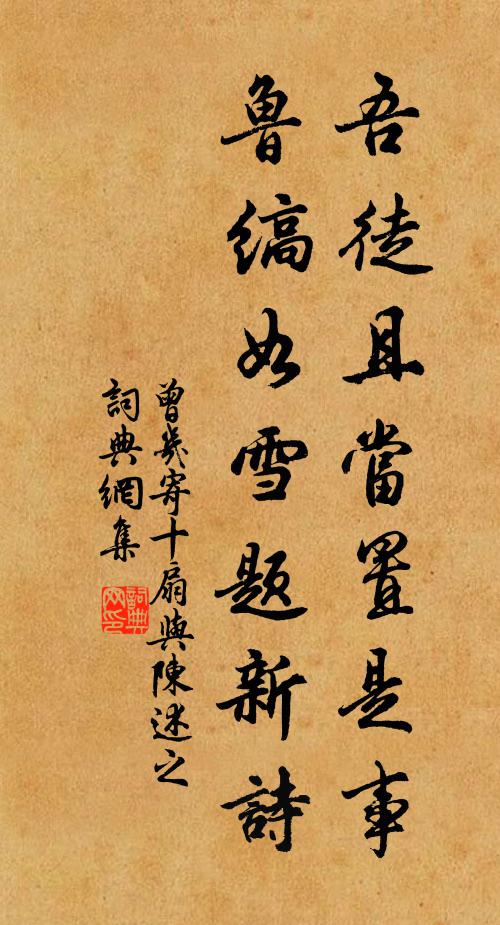 吾徒且當置是事
魯縞如雪題新詩
曾幾寄十扇與陳述之
詞典網集
詞典网印